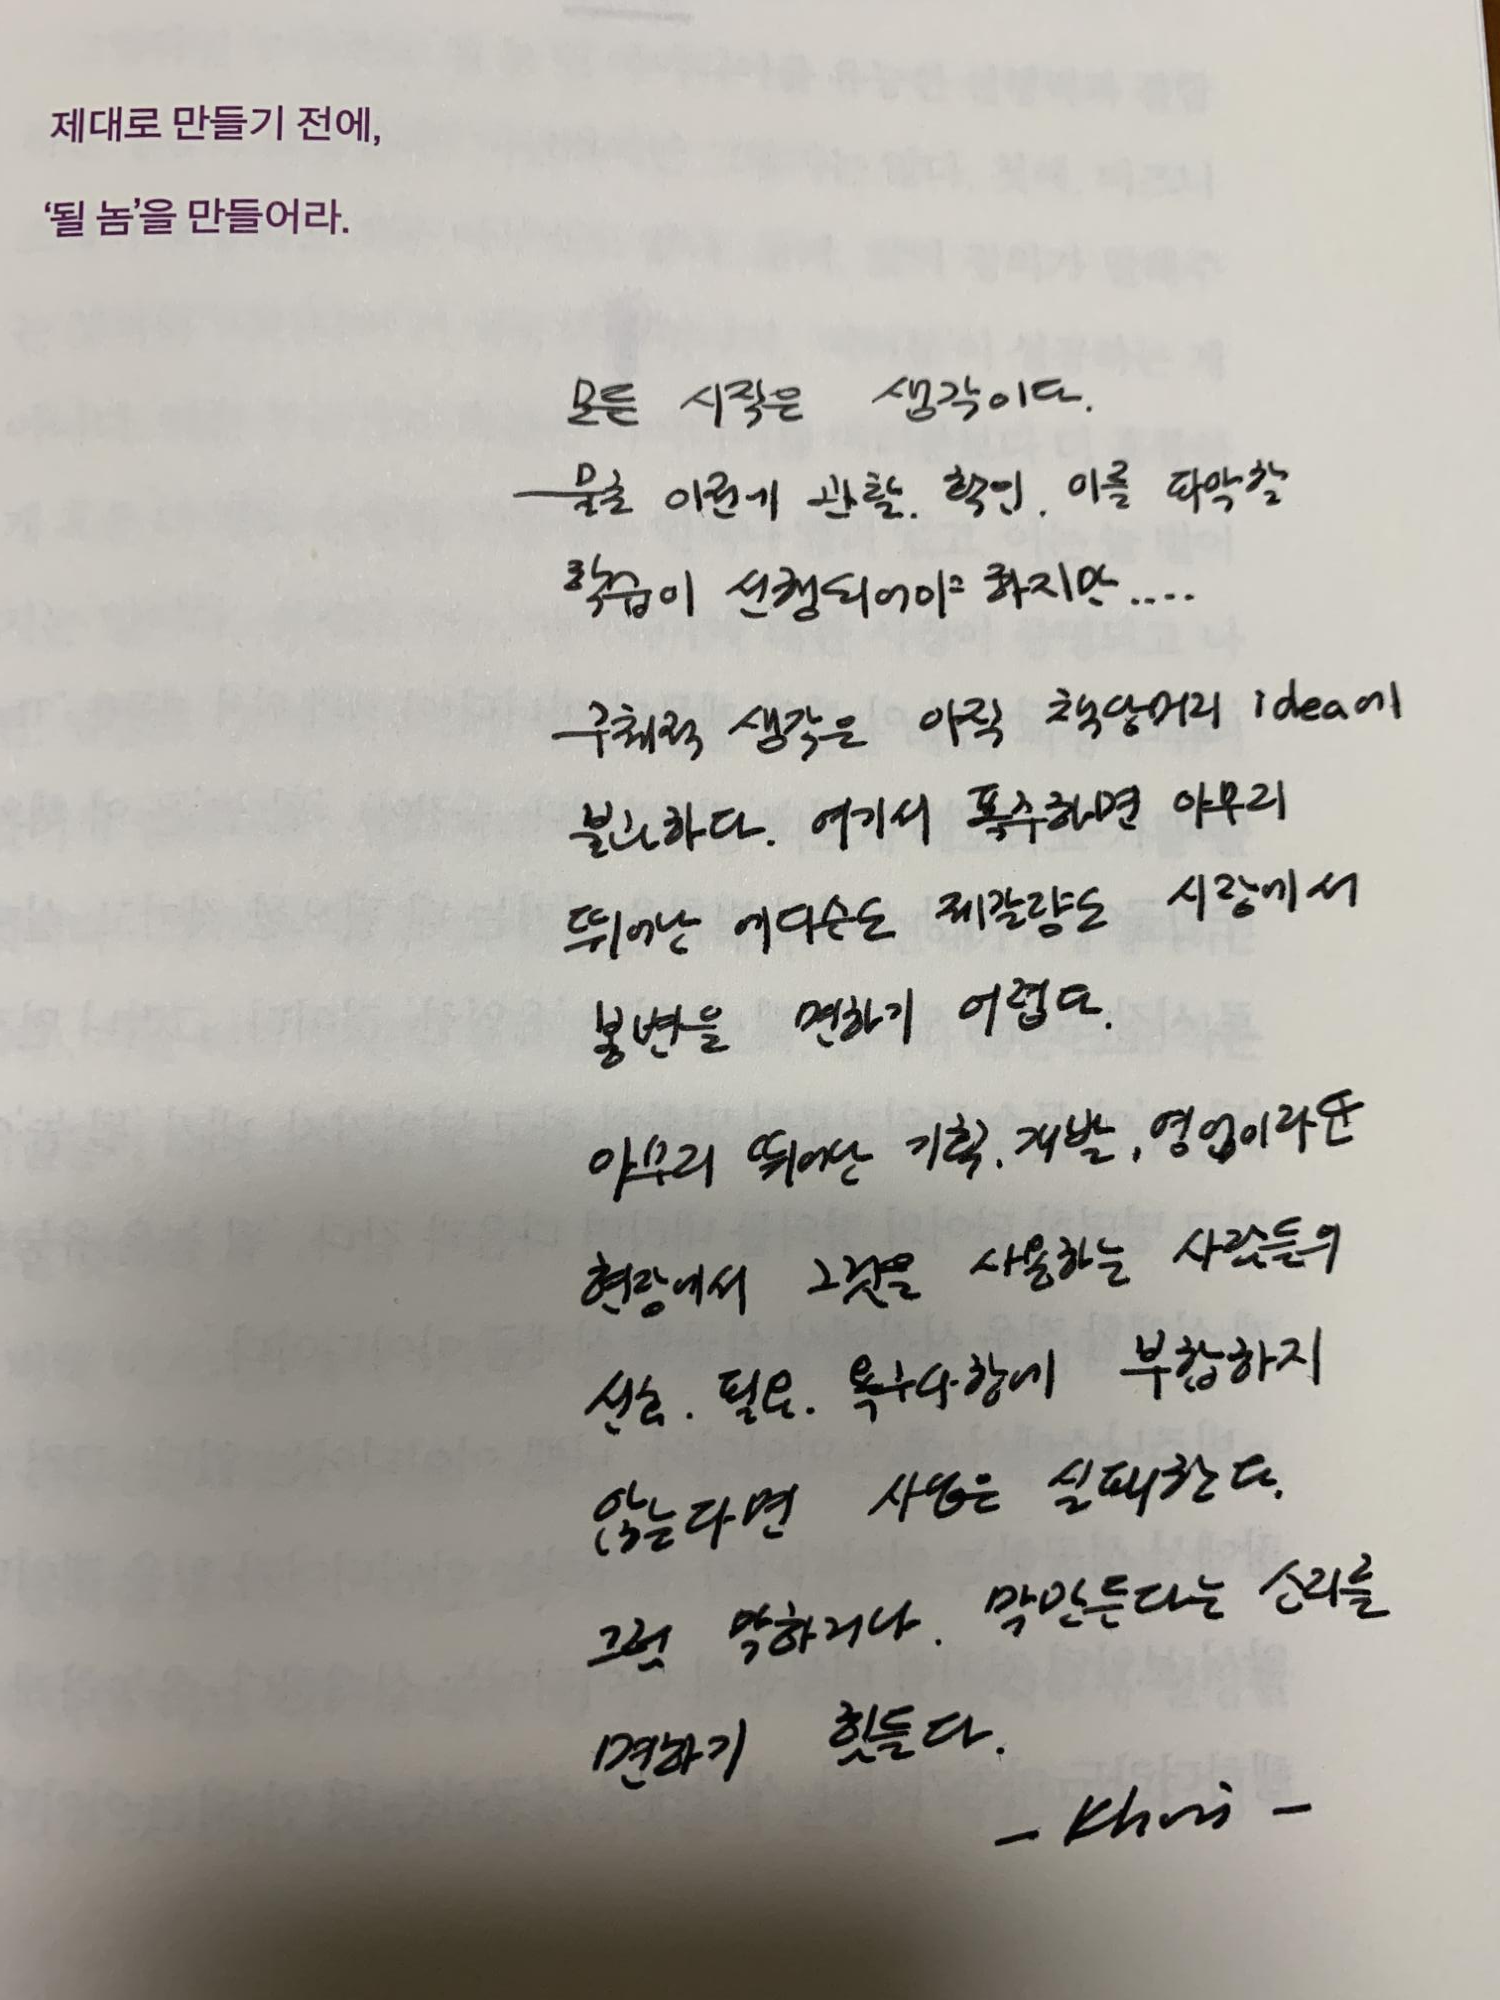 제대로 만들기 전에,
'될 놈'을 만들어라.
모든 시작은 생각이다.
물론 이런게 관찰. 확인. 이를 파악할
학습이 선행되어야 하지만....
구체적 생각은 아직 책상머리 idea에
불과하다. 여기서 폭주하면 아무리
뛰어난 에디슨도 제갈량도 시장에서
봉변을 면하기 어렵다.
아무리 뛰어난 기획. 개발, 영업이라도
현장에서 그것을 사용하는 사람들의
선호. 필요. 요구사항에 부합하지
않는다면 사업은 실패한다.
그럼 막하거나. 막만든다는 소리를
면하기 힘들다.
- Khris -